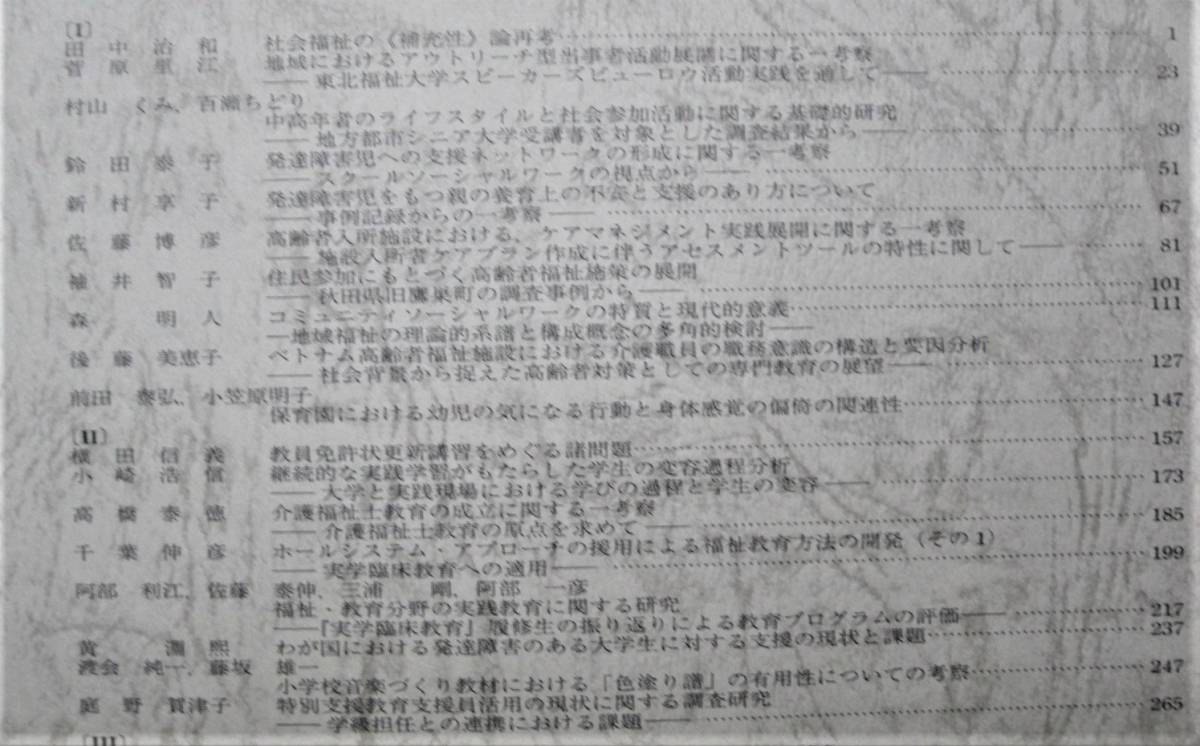 [I]
田中治和 社会福祉の《補充性》論再考 1
菅原里江 地域におけるアウトリーチ型当事者活動展開に関する一考察
――東北福祉大学スピーカーズビューロウ活動実践を通して―― 23
村山 くみ、百瀬ちどり
中高年者のライフスタイルと社会参加活動に関する基礎的研究
――地方都市シニア大学受講者を対象とした調査結果から―― 39
鈴田泰子 発達障害児への支援ネットワークの形成に関する一考察
――スクールソーシャルワークの視点から―― 51
新村享子 発達障害児をもつ親の養育上の不安と支援のあり方について
――事例記録からの一考察―― 67
佐藤博彦 高齢者入所施設における、ケアマネジメント実践展開に関する一考察
――施設入所者ケアプラン作成に伴うアセスメントツールの特性に関して―― 81
袖井智子 住民参加にもとづく高齢者福祉施策の展開
――秋田県旧鷹巣町の調査事例から―― 101
森明人 コミュニティソーシャルワークの特質と現代的意義 111
―地域福祉の理論的系譜と構成概念の多角的検討――
後藤美恵子 ベトナム高齢者福祉施設における介護職員の職務意識の構造と要因分析
――社会背景から捉えた高齢者対策としての専門教育の展望―― 127
前田 泰弘、小笠原明子
保育園における幼児の気になる行動と身体感覚の偏倚の関連性 147
[II]
横田信義 教員免許状更新講習をめぐる諸問題 157
小崎浩信 継続的な実践学習がもたらした学生の変容過程分析
――大学と実践現場における学びの過程と学生の変容―― 173
高橋泰徳 介護福祉士教育の成立に関する一考察
――介護福祉士教育の原点を求めて―― 185
千葉伸彦 ホールシステム・アプローチの援用による福祉教育方法の開発（その1）
――実学臨床教育への適用―― 199
阿部 利江、佐藤 泰伸、三浦 剛、阿部 一彦
福祉・教育分野の実践教育に関する研究
――「実学臨床教育」履修生の振り返りによる教育プログラムの評価―― 217
黄淵熙 わが国における発達障害のある大学生に対する支援の現状と課題 237
渡会 純一、藤坂 雄一
小学校音楽づくり教材における「色塗り譜」の有用性についての考察 247
庭野賀津子 特別支援教育支援員活用の現状に関する調査研究
――学級担任との連携における課題―― 265
[III]